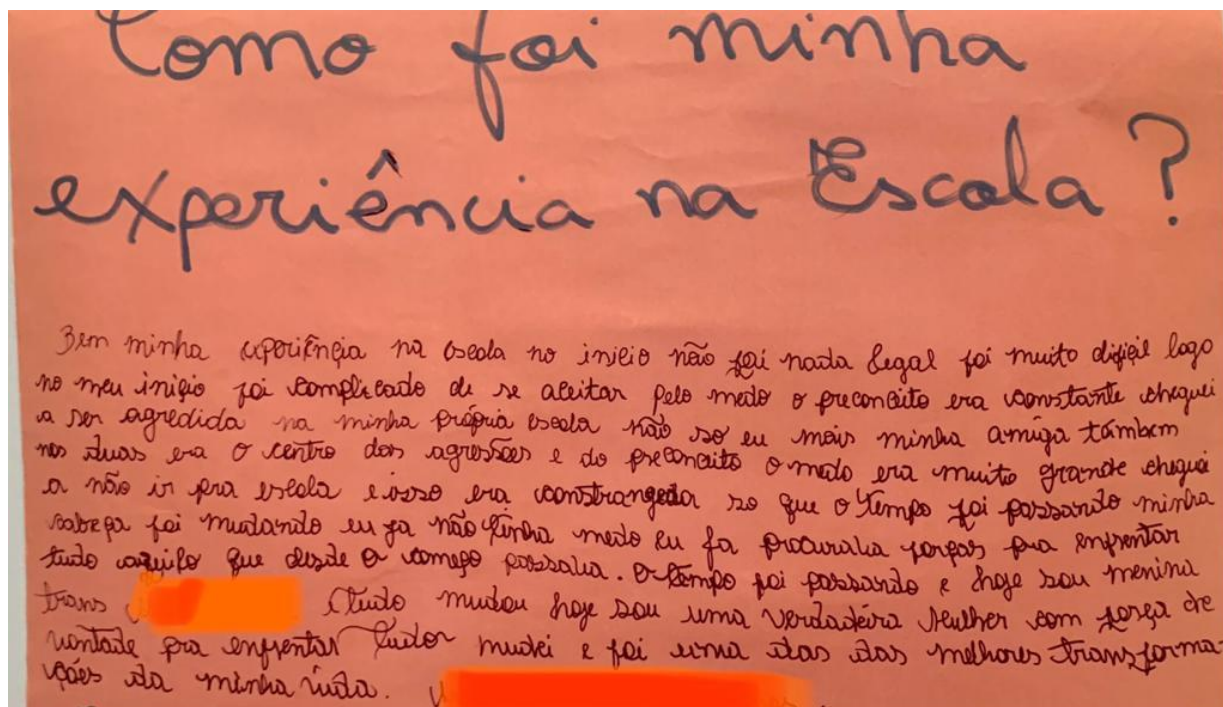 Como foi minha
experiência na Escola?
Bem minha experiência na escola no inicio não foi nada legal foi muito difiçil logo
no meu inicio foi complicado de se aceitar pelo medo o preconceito era constante cheguei
a ser agredida na minha própria escola não so eu mais minha amiga também
nos duas era o centro das agressões e do preconceito o medo era muito grande cheguei
a não ir pra escola e isso era so que o tempo foi passando minha
cabeça foi mudando eu ja não tinha medo eu ja procurava forças pra enfrentar
tudo aquilo que desde o começo passava. O tempo foi passando e hoje sou menina
trans tudo mudou hoje sou uma verdadeira Mulher com força de
vontade pra enfrentar tudo mudei e foi uma das das melhores transforma
ções da minha vida.